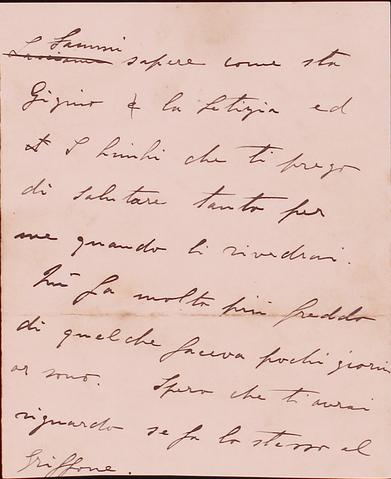 Fammi
sapere come sta
Gigino & la Letizia ed
I bimbi che ti prego
di salutare tanto per
me quando li rivedrai.
Qui fa molto più freddo
di quel che faceva pochi giorni
or sono. Spero che ti avrai
riguardo se fa lo stesso al
Griffone.